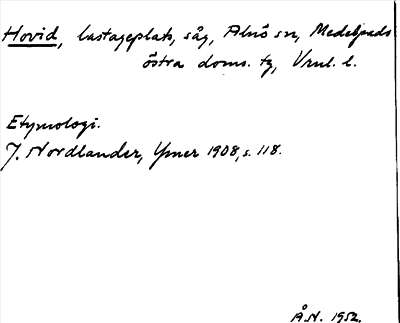 Hovid, lastageplats, såg, Alnö sn, Medelpads
östra doms. tg, Vnnl. l.
Etymologi.
J. Nordlander, Ymer 1908, s. 118.
Å.N. 1952.